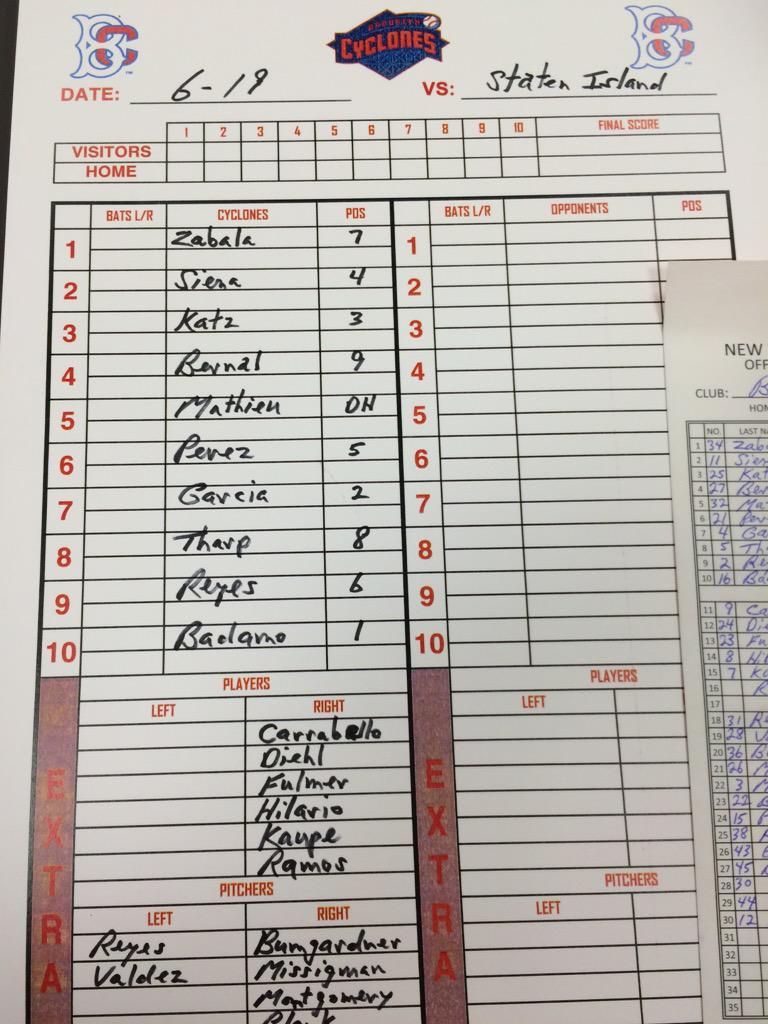 BROOKLYN
CYCLONES
DATE: 6-19 VS: Staten Island
1 2 3 4 5 6 7 8 9 10 FINAL SCORE
VISITORS
HOME
BATS L/R CYCLONES POS BATS L/R OPPONENTS POS
1 Zabala 7 1
2 Siena 4 2
3 Katz 3 3
4 Bernal 9 4
5 Mathieu DH 5
6 Perez 5 6
7 Garcia 2 7
8 Tharp 8 8
9 Reyes 6 9
10 Badamo 1 10
EXTRA
PLAYERS
LEFT RIGHT
Carrabello
Diehl
Fulmer
Hilario
Kaupe
Ramos
PITCHERS
LEFT RIGHT
Reyes Bumgardner
Valdez Missigman
Montgomery
EXTRA
PLAYERS
LEFT
PITCHERS
LEFT
NEW
OFF
CLUB: B
HOM
NO. LAST N
1 34 Zaba
2 11 Sien
3 25 Kat
4 27 Ber
5 32 Ma
6 21 Per
7 4 Ga
8 5 Th
9 2 Re
10 16 Bad
11 9 Ca
12 24 Die
13 23 Fu
14 8 Hil
15 7 Ka
16 R
17
18 31 Re
19 28 V
20 36 B
21 26 M
22 3 M
23 22
24 15
25 38
26 43
27 45
28 30
29 44
30 12
31
32
33
34
35